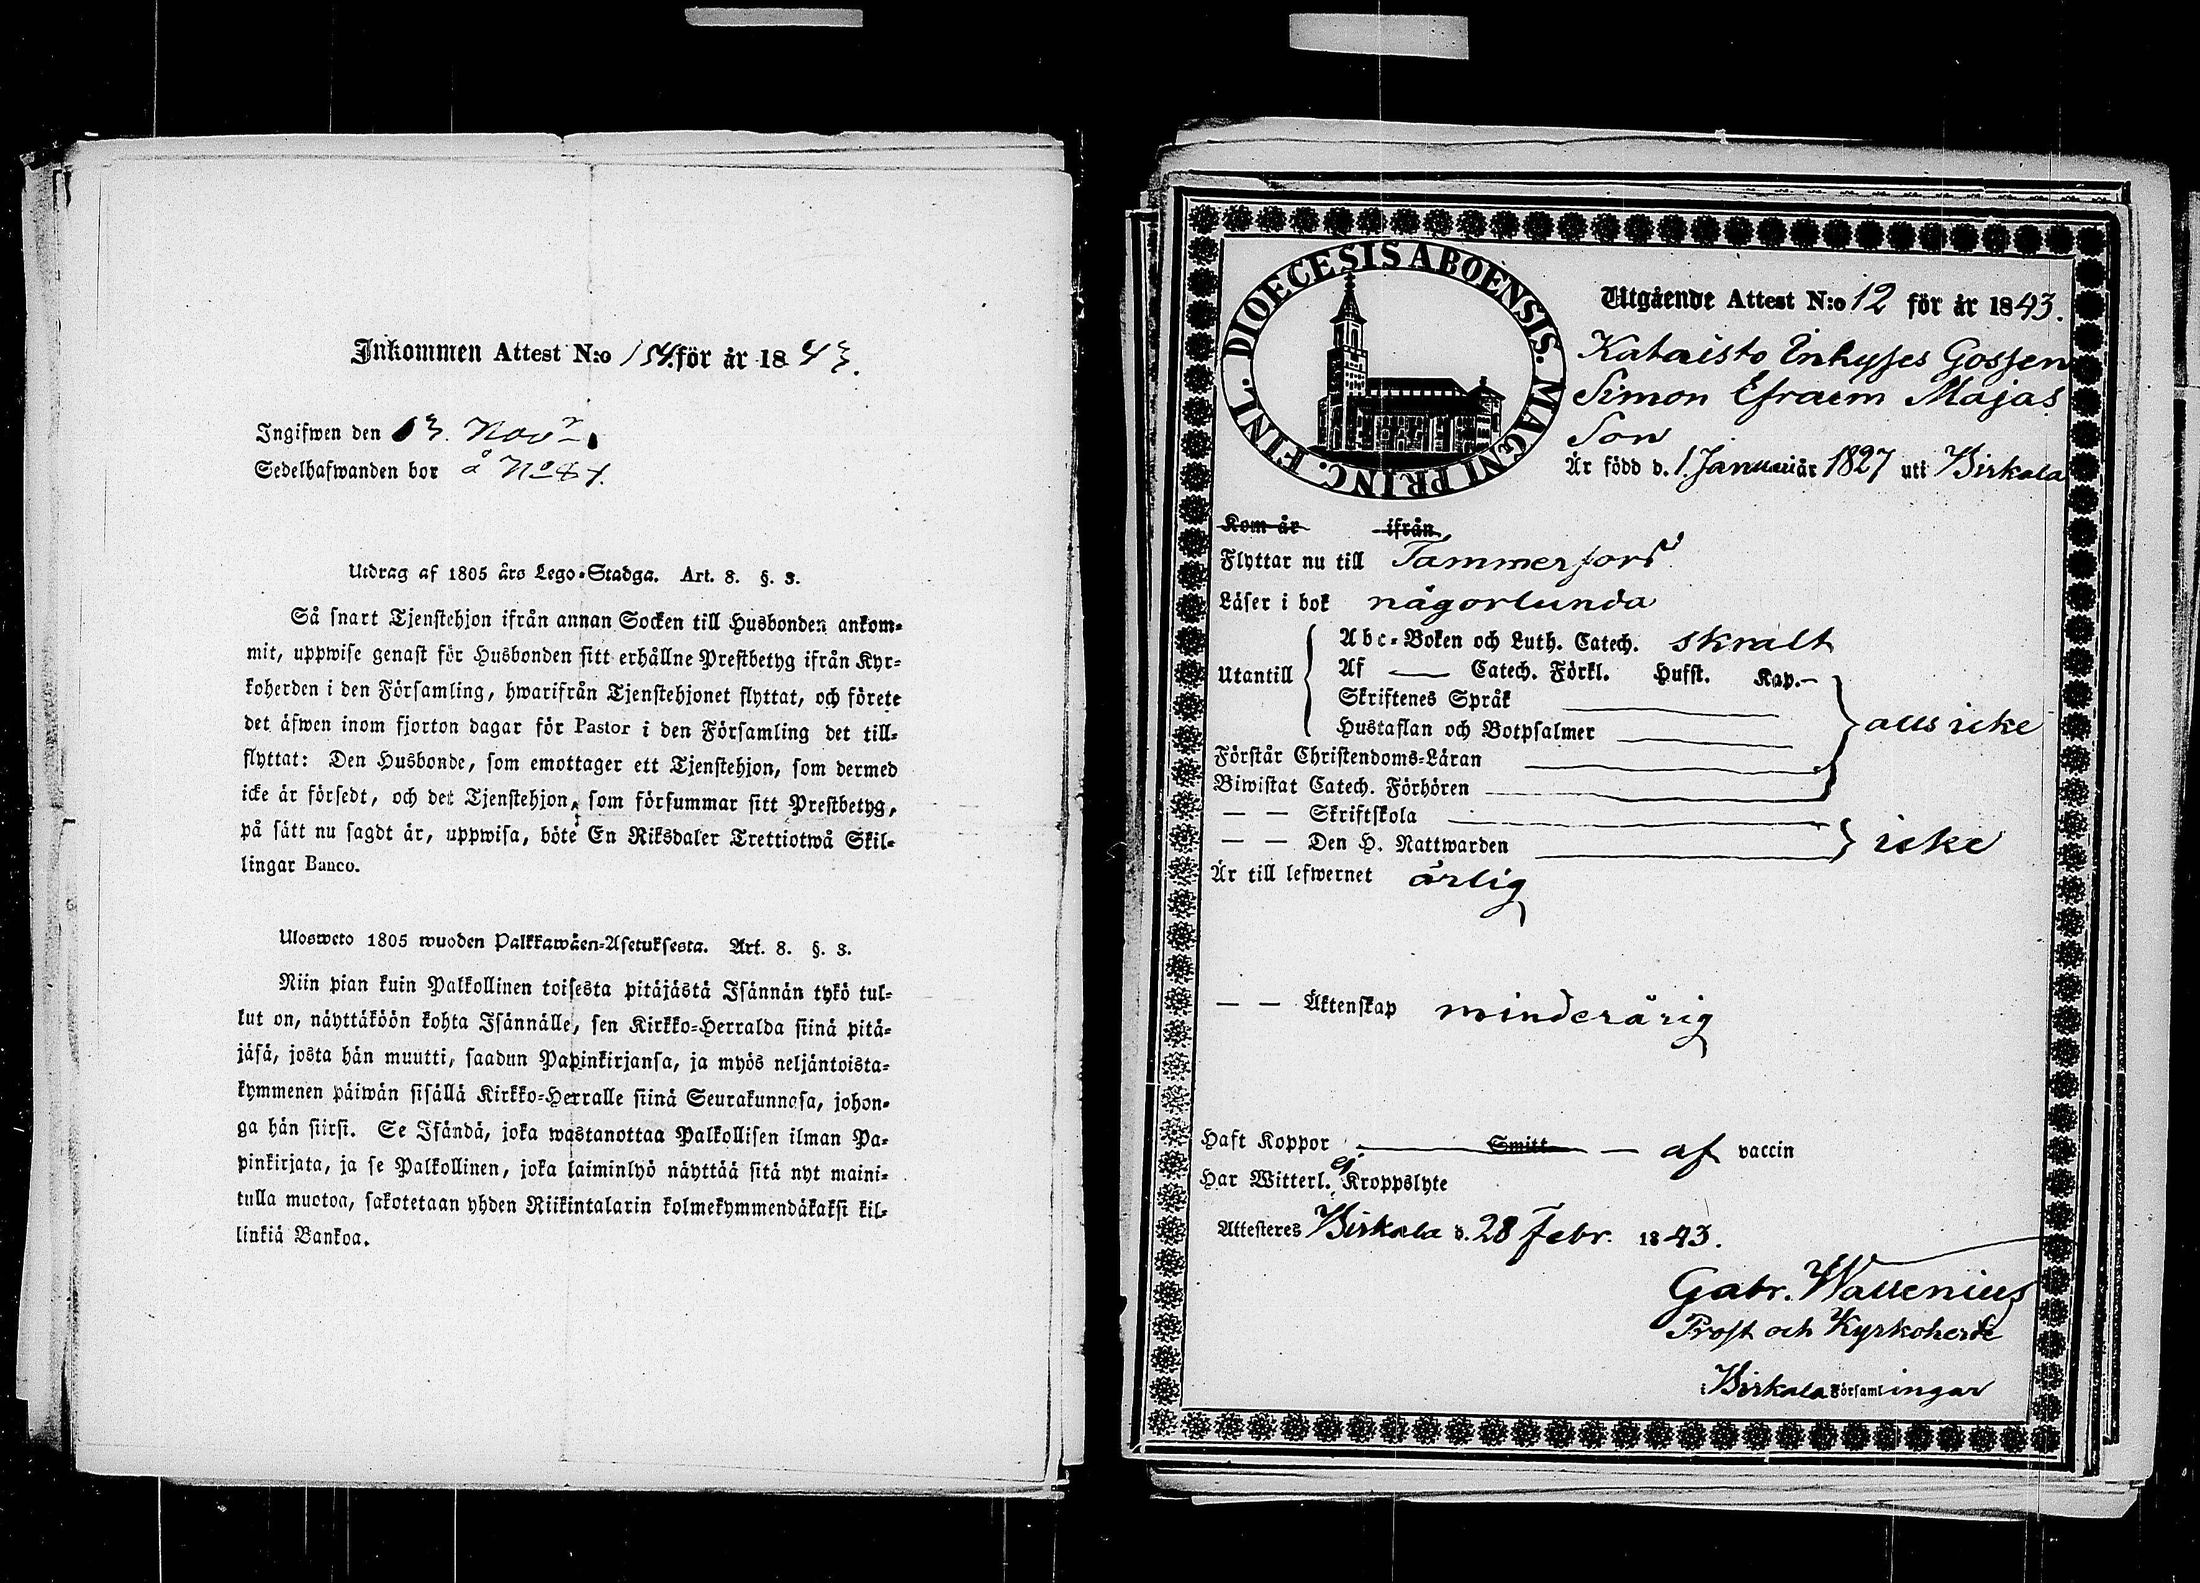 Inkommen Attest N:o 154. för år 1843.
Ingifwen den 13. Novr
Sedelhafwanden bor å No 81.
Utdrag af 1805 års Lego-Stadga. Art. 8. §. 3.
Så snart Tjenstehjon ifrån annan Socken till Husbonden ankom-
mit, uppwise genast för Husbonden sitt erhållne Prestbetyg ifrån Kyr-
koherden i den Församling, hwarifrån Tjenstehjonet flyttat, och förete
det äfwen inom fjorton dagar för Pastor i den Församling det till-
flyttat: Den Husbonde, som emottager ett Tjenstehjon, som dermed
icke är försedt, och det Tjenstehjon, som försummar sitt Prestbetyg,
på sätt nu sagdt är, uppwisa, böte En Riksdaler Trettiotwå Skil-
lingar Banco.
Ulosweto 1805 wuoden Palkkawäen-Asetuksesta. Art. 8. §. 3.
Niin pian kuin Palkollinen toisesta pitäjästä Isännän tykö tul-
lut on, näyttäköön kohta Isännälle, sen Kirkko-Herralda siinä pitä-
jäsä, josta hän muutti, saadun Papinkirjansa, ja myös neljäntoista-
kymmenen päiwän sisällä Kirkko-Herralle siinä Seurakunnasa, johon-
ga hän siirsi. Se Isändä, joka wastanottaa Palkollisen ilman Pa-
pinkirjata, ja se Palkollinen, joka laiminlyö näyttää sitä nyt maini-
tulla muotoa, sakotetaan yhden Riikintalarin kolmekymmendäkaksi kil-
linkiä Bankoa.
DIOECESIS ABOENSIS. MAGNI PRINC. FINL.
Utgående Attest N:o 12 för år 1843.
Kataisto Enkyses Gossen
Simon Efraim Majas
Son
Är född d. 1. Januari år 1827 uti Birkala
Kom år ifrån
Flyttar nu till Tammerfors
Läser i bok någorlunda
Utantill
Abc-Boken och Luth. Catech. skralt
Af — Catech. Förkl. Husst. Kap. —
Skriftenes Språk
Hustaflan och Botpsalmer
alls icke
Förstår Christendoms-Läran
Biwistat Catech. Förhören
— — Skriftskola
— — Den H. Nattwarden
icke
Är till lefwernet ärlig
— — Äktenskap minderårig
Haft Koppor — Smitt — af vaccin
Har Witterl. ej Kroppslyte
Attesteres Birkala d. 28 Febr. 1843.
Gabr. Wallenius
Prost och Kyrkoherde
i Birkala Församlingar